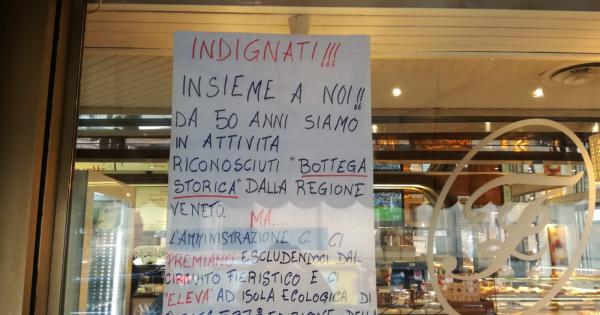 INDIGNATI!!!
INSIEME A NOI!!
DA 50 ANNI SIAMO
IN ATTIVITA
RICONOSCIUTI "BOTTEGA
STORICA" DALLA REGIONE
VENETO.
MA....
L'AMMINISTRAZIONE C. CI
PREMIANO ESCLUDENDOCI DAL
CIRCUITO FIERISTICO E CI
"ELEVA" AD ISOLA ECOLOGICA DI